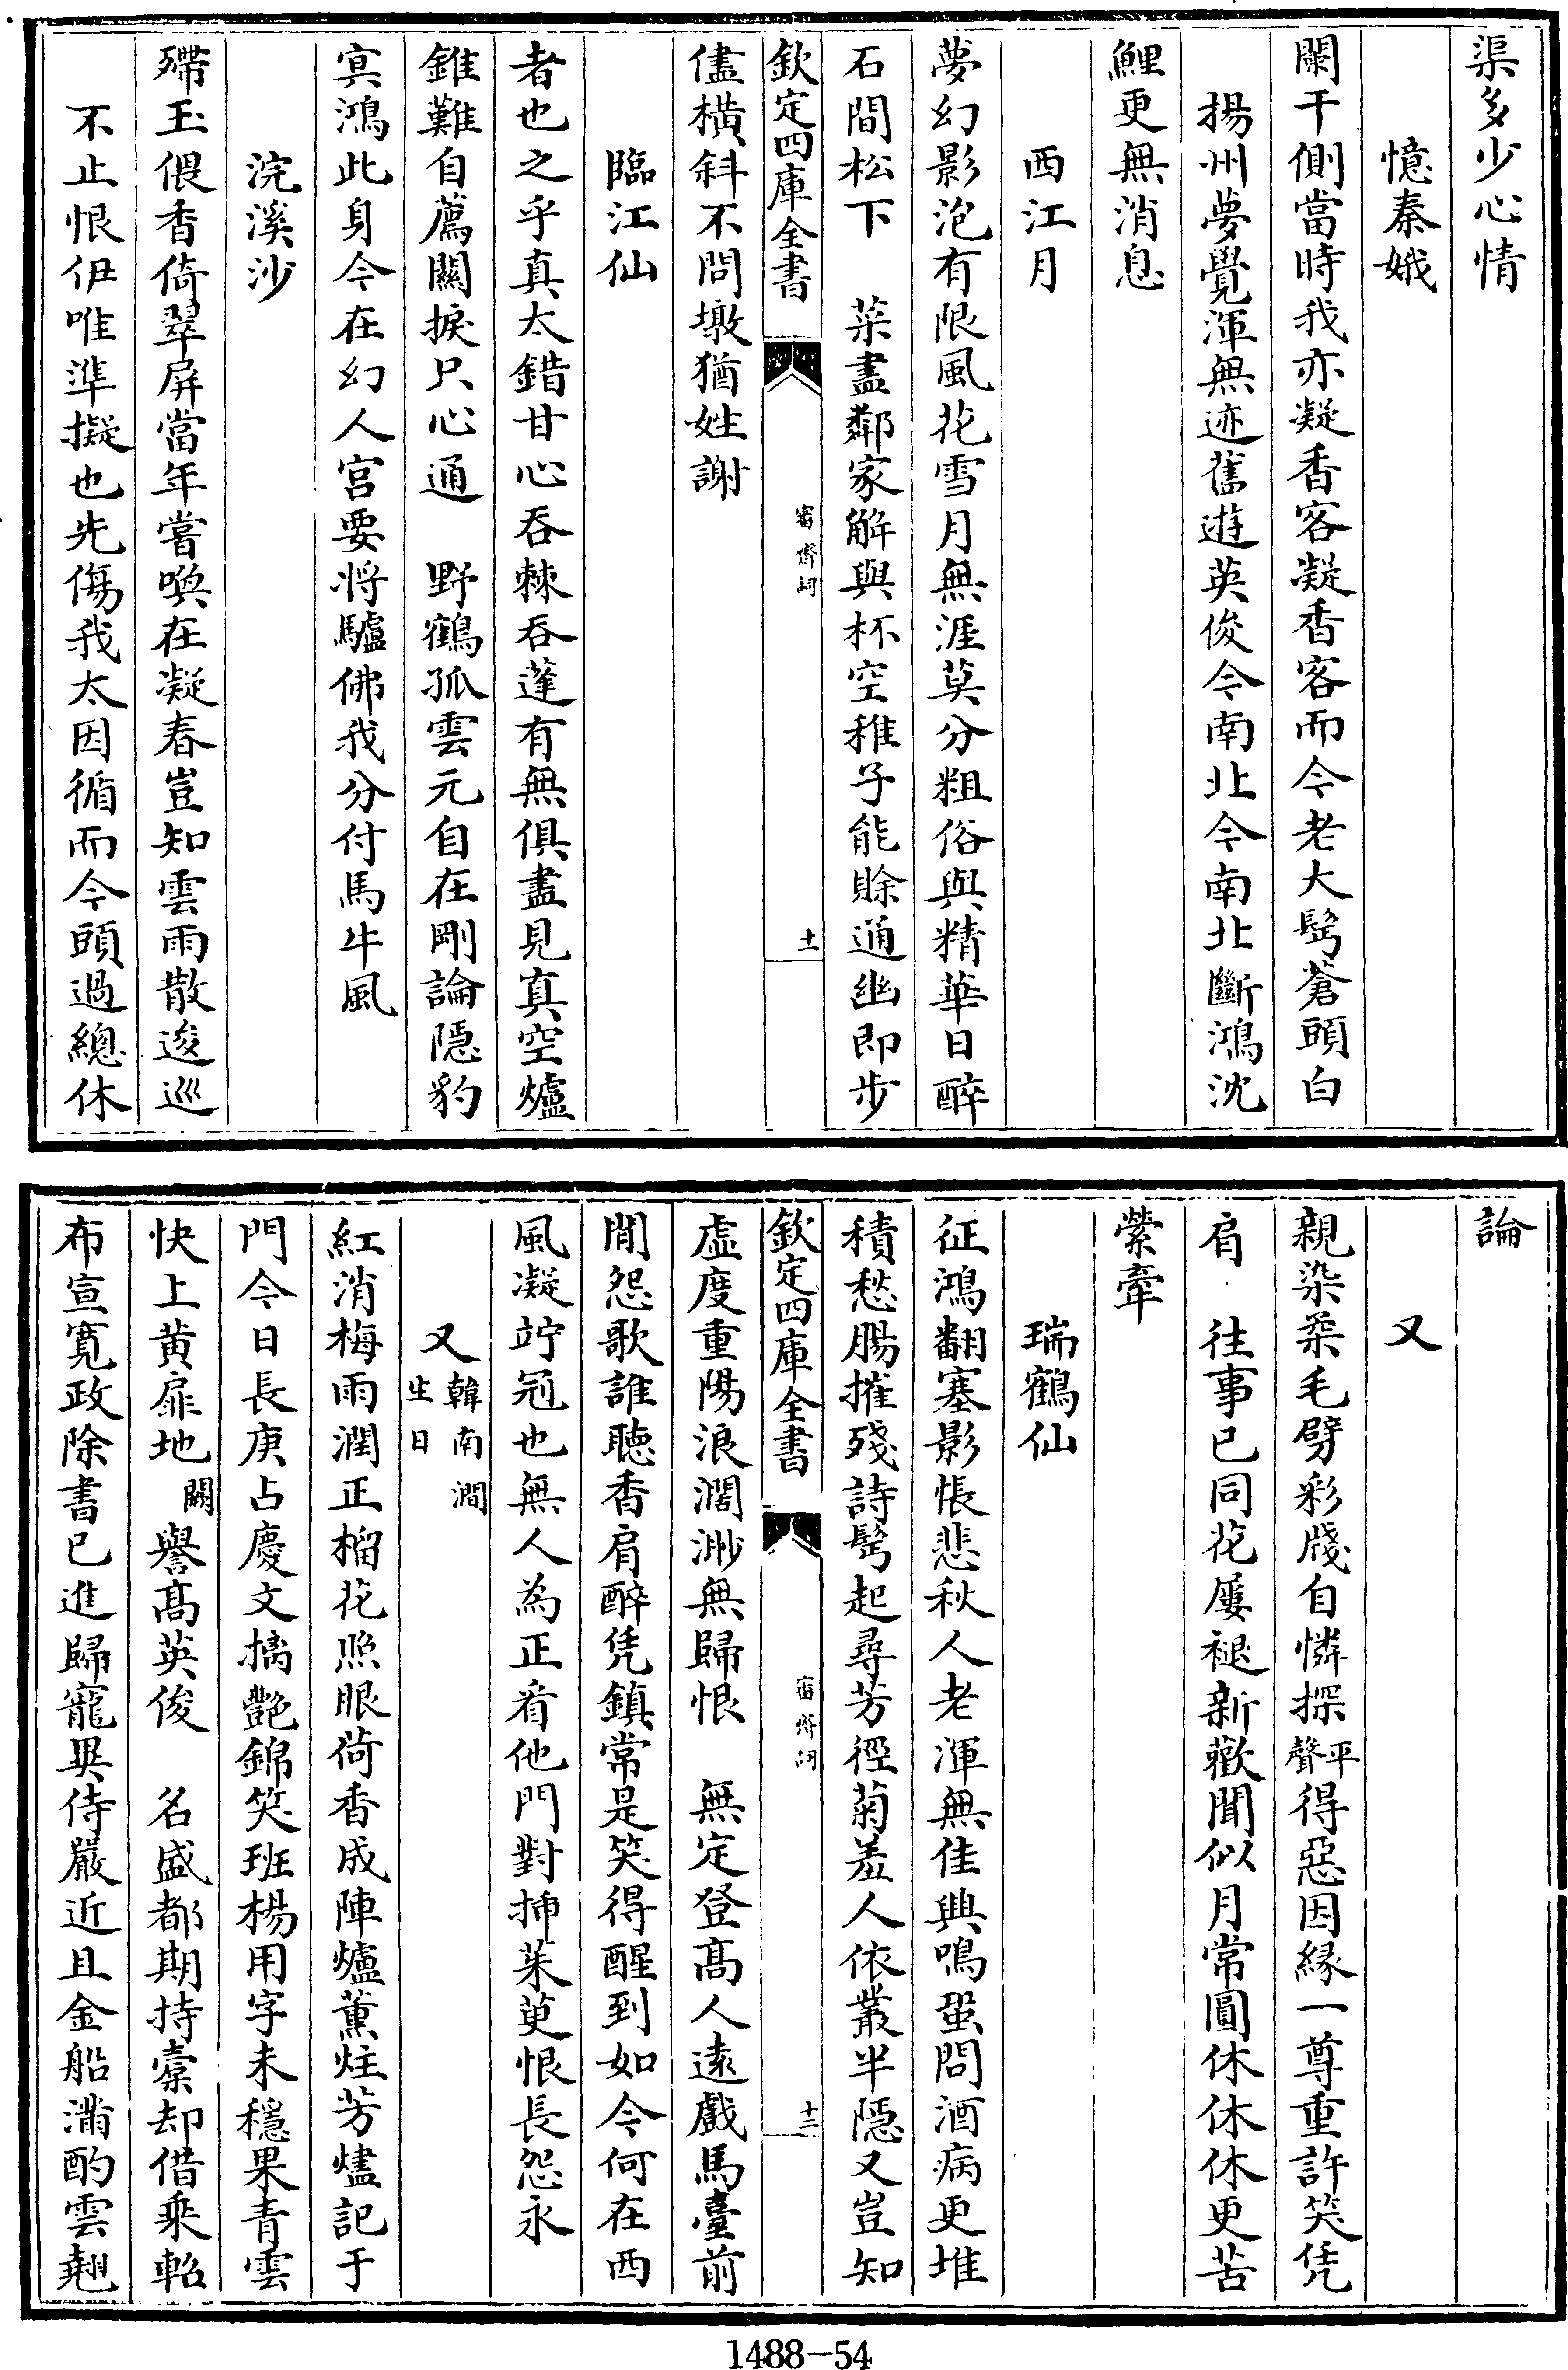 渠多少心情
憶秦娥
闌干側當時我亦凝香客凝香客而今老大鬂蒼頭白
揚州夢覺渾無迹舊遊英俊今南北今南北斷鴻沈
鯉更無消息
西江月
夢幻影泡有限風花雪月無涯莫分粗俗與精華日醉
石間松下　菜盡鄰家解與杯空稚子能賒通幽即步
欽定四庫全書
審齋詞
十一
儘橫斜不問墩猶姓謝
臨江仙
者也之乎真太錯甘心吞棘吞蓬有無俱盡見真空爐
錐難自薦關捩只心通　野鶴孤雲元自在剛論隱豹
冥鴻此身今在幻人宮要將驢佛我分付馬牛風
浣溪沙
殢玉偎香倚翠屏當年嘗喚在凝春豈知雲雨散逡巡
不止恨伊唯準擬也先傷我太因循而今頭過總休
論
又
親染柔毛劈彩牋自憐探平聲得惡因緣一尊重許笑凭
肩　往事已同花屢褪新歡聞似月常圓休休休更苦
縈牽
瑞鶴仙
征鴻翻塞影悵悲秋人老渾無佳興鳴蛩問酒病更堆
積愁腸摧殘詩鬂起尋芳徑菊羞人依叢半隱又豈知
欽定四庫全書
審齋詞
十二
虛度重陽浪濶渺無歸恨　無定登高人遠戲馬臺前
閒怨歌誰聽香肩醉凭鎮常是笑得醒到如今何在西
風凝竚冠也無人為正看他門對揷茱萸恨長怨永
又韓南澗生日
紅消梅雨潤正榴花照眼荷香成陣爐薰炷芳燼記于
門今日長庚占慶文摛艶錦笑班楊用字未穩果青雲
快上黄扉地闕譽髙英俊　名盛都期持橐却借乘軺
布宣寛政除書已進歸寵異侍嚴近且金船滿酌雲翹
1488-54